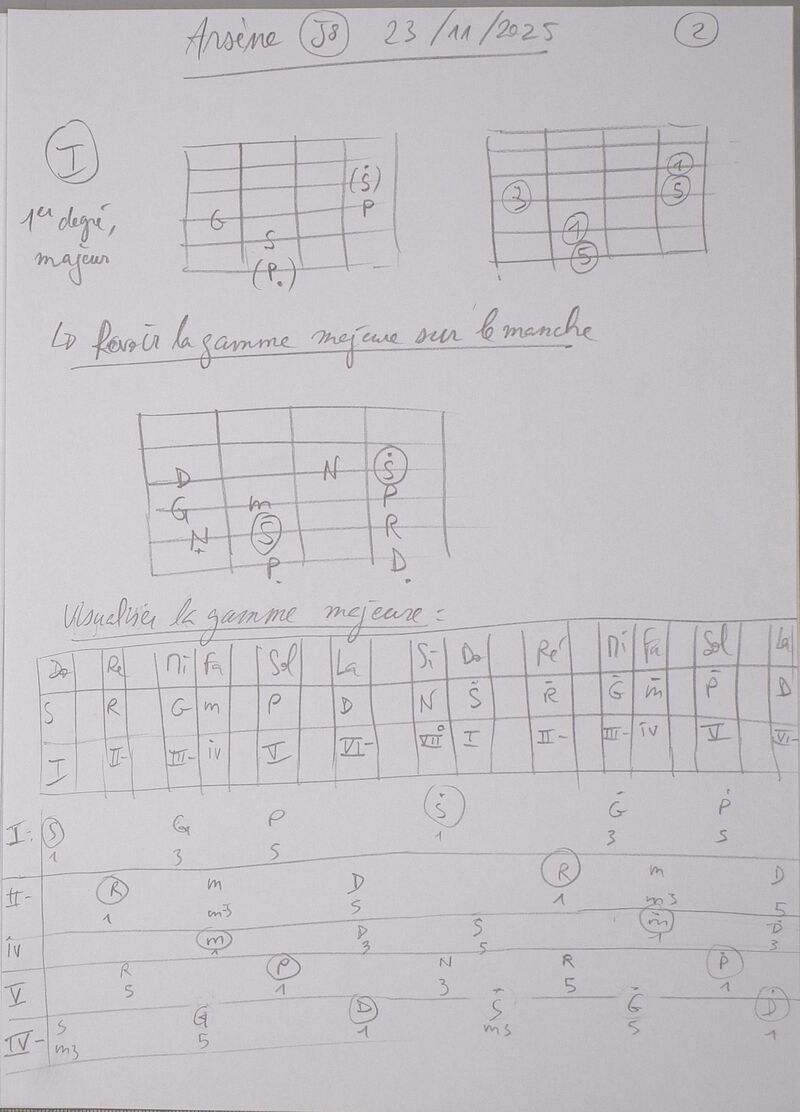 Arsène J8 23/11/2025 2
I
1er degré,
majeur
G S (P.) (Ṡ) P
3 1 5 1 5
↳ Revoir la gamme majeure sur le manche
D N Ṡ
G m P
N+ S R
P. D.
Visualiser la gamme majeure :
Do Ré Mi Fa Sol La Si Do Ré Mi Fa Sol La
S R G m P D N Ṡ R̄ Ḡ m̄ P̄ D
I II- III- iv V VI- VII° I II- III- iv V VI-
I: S G P Ṡ Ḡ Ṗ
1 3 5 1 3 5
II- R m D R m D
1 m3 5 1 m3 5
iv m D S ṁ Ḋ
1 3 5 1 3
V R P N R Ṗ
5 1 3 5 1
IV- S G D S̄ Ḡ Ḋ
m3 5 1 m3 5 1